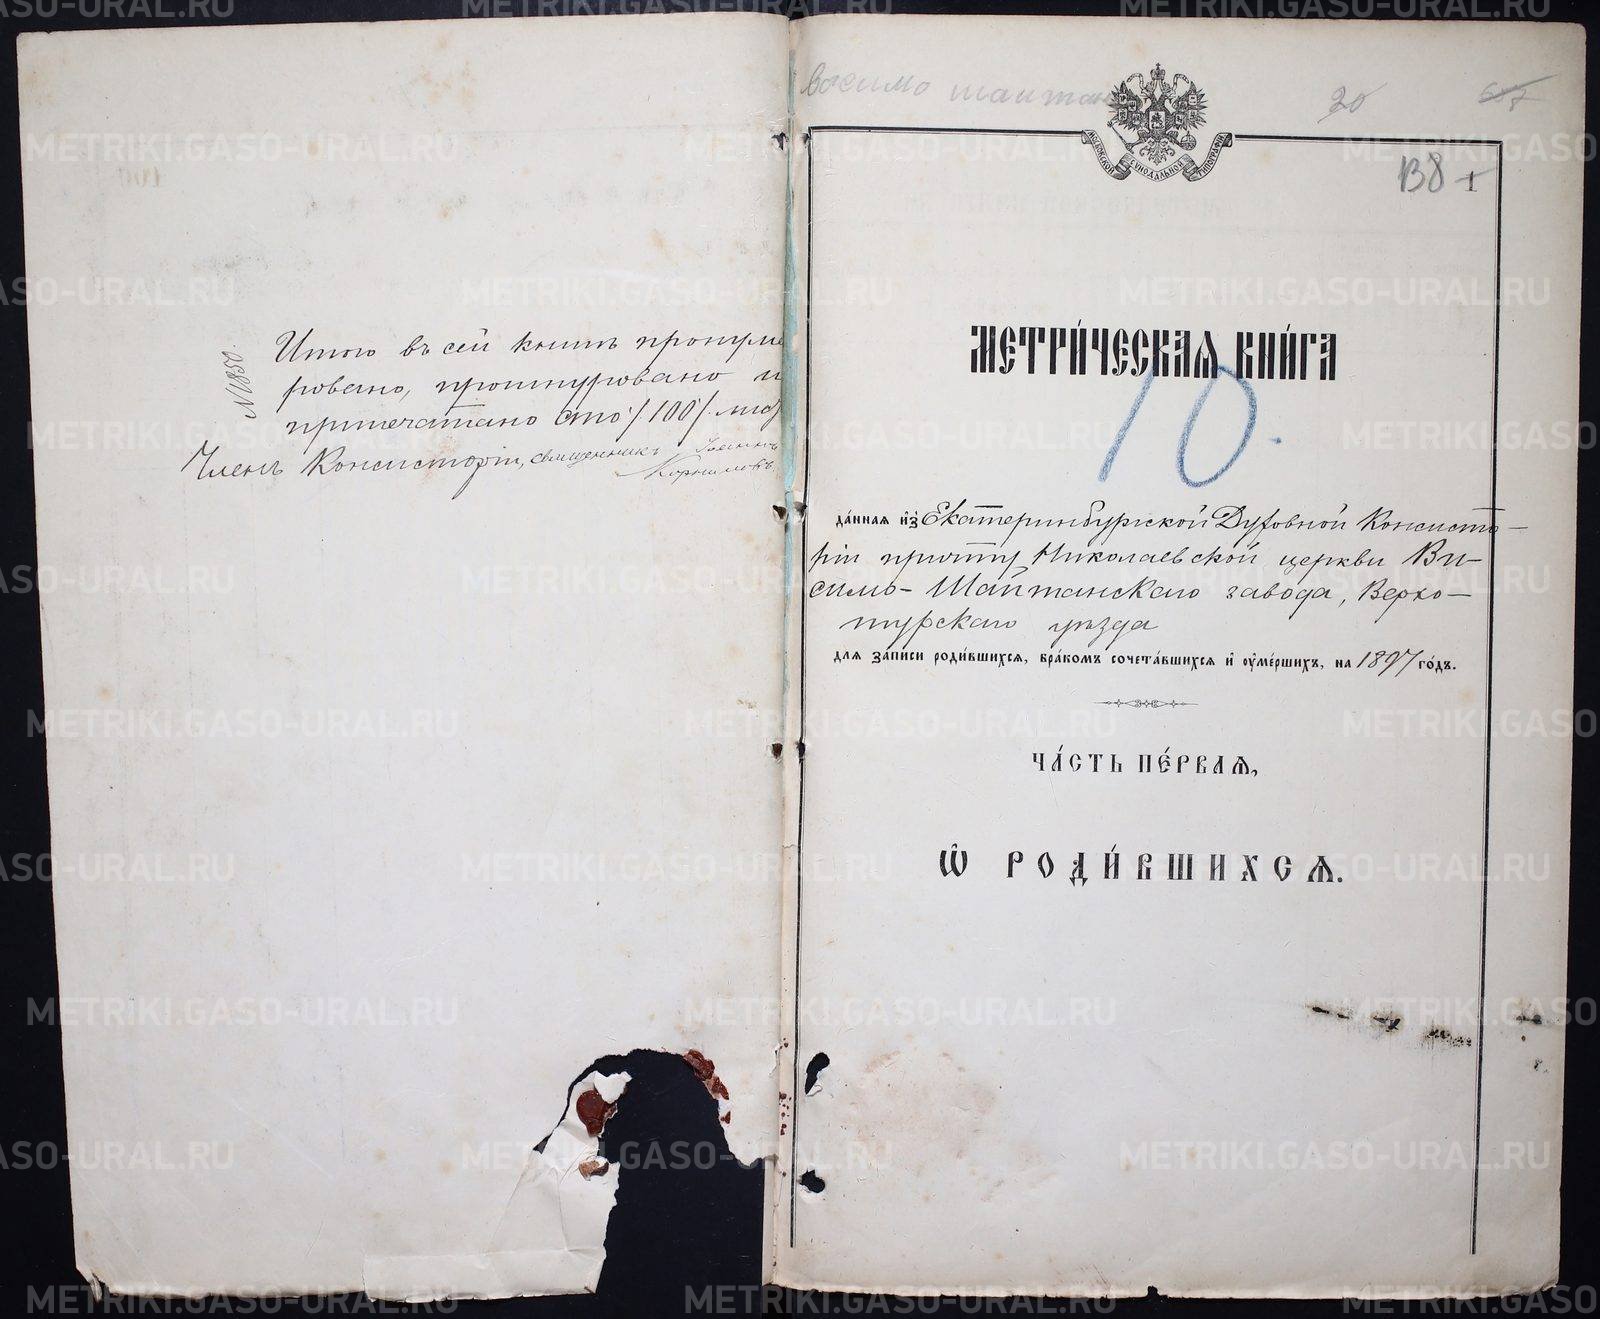 № 1850.
Итого въ сей книгѣ пронуме
ровано, прошнуровано и
припечатано сто /100/ лис
Членъ Консисторіи, священникъ Іоаннъ
Корниловъ
восимо шайтан
20
138
1
МОСКОВСКОЙ СУНОДАЛЬНОЙ ТИПОГРАФІИ
МЕТРИ́ЧЕСКАѦ КНИ́ГА
10.
да́нная и҆з̾ Екатеринбургской Духовной Консисто-
ріи причту Николаевской церкви Ви-
симо-Шайтанскаго завода, Верхо-
турскаго уѣзда
для за́писи роди́вшихсѧ, бра́комъ сочета́вшихсѧ и҆ ᲂу҆ме́ршихъ, на 1897 го́дъ.
ЧА́СТЬ ПЕ́РВАѦ,
Ѽ РОДИ́ВШИХСѦ.
METRIKI.GASO-URAL.RU